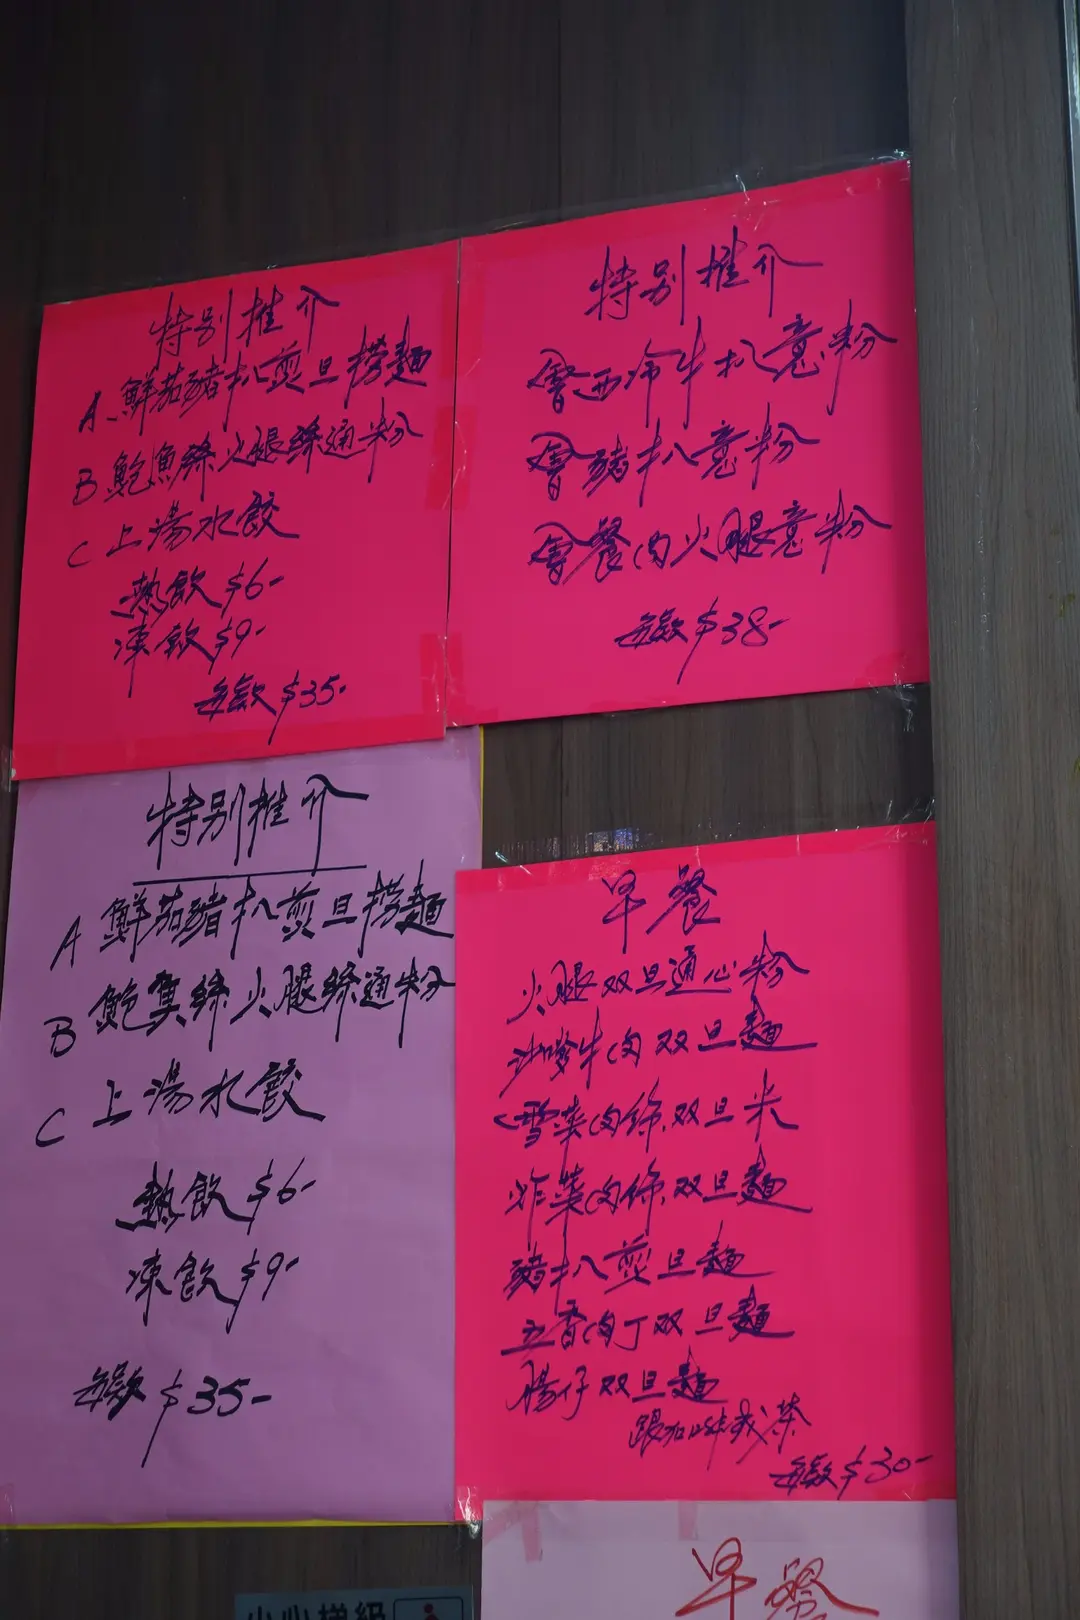 特别推介
A 鮮茄豬扒煎旦撈麵
B 鮑魚絲火腿絲通粉
C 上湯水餃
熱飲 $6-
凍飲 $9-
每款 $35-
特别推介
會西冷牛扒意粉
會豬扒意粉
會餐肉火腿意粉
每款 $38-
特别推介
A 鮮茄豬扒煎旦撈麵
B 鮑䱇絲火腿絲通粉
C 上湯水餃
熱飲 $6-
凍飲 $9-
每款 $35-
早餐
火腿双旦通心粉
沙嗲牛肉双旦麵
雪菜肉絲双旦米
炸菜肉絲双旦麵
豬扒煎旦麵
五香肉丁双旦麵
腸仔双旦麵
跟加啡或茶
每款 $30-
早餐
小心梯級